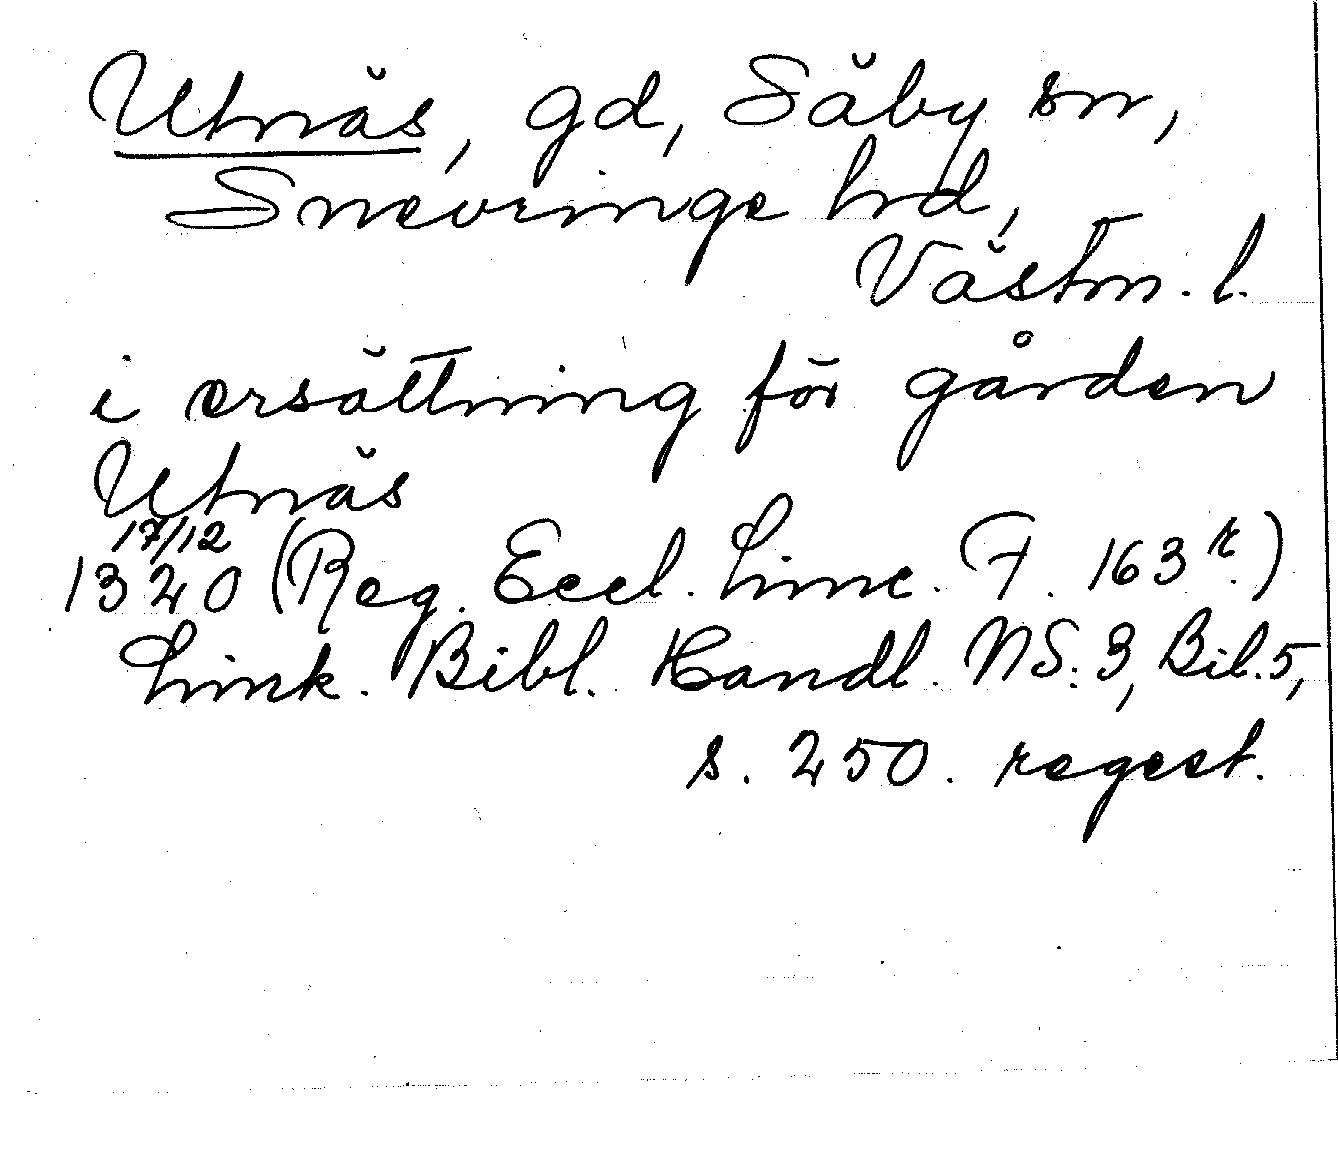 Utnäs, gd, Säby sn,
Snevringe hd,
Västm. l.
i ersättning för gården
Utnäs
17/12
1320 (Reg. Eccl. Linc. F. 163 r.)
Link. Bibl. Handl. NS. 3, Bil. 5,
s. 250. regest.